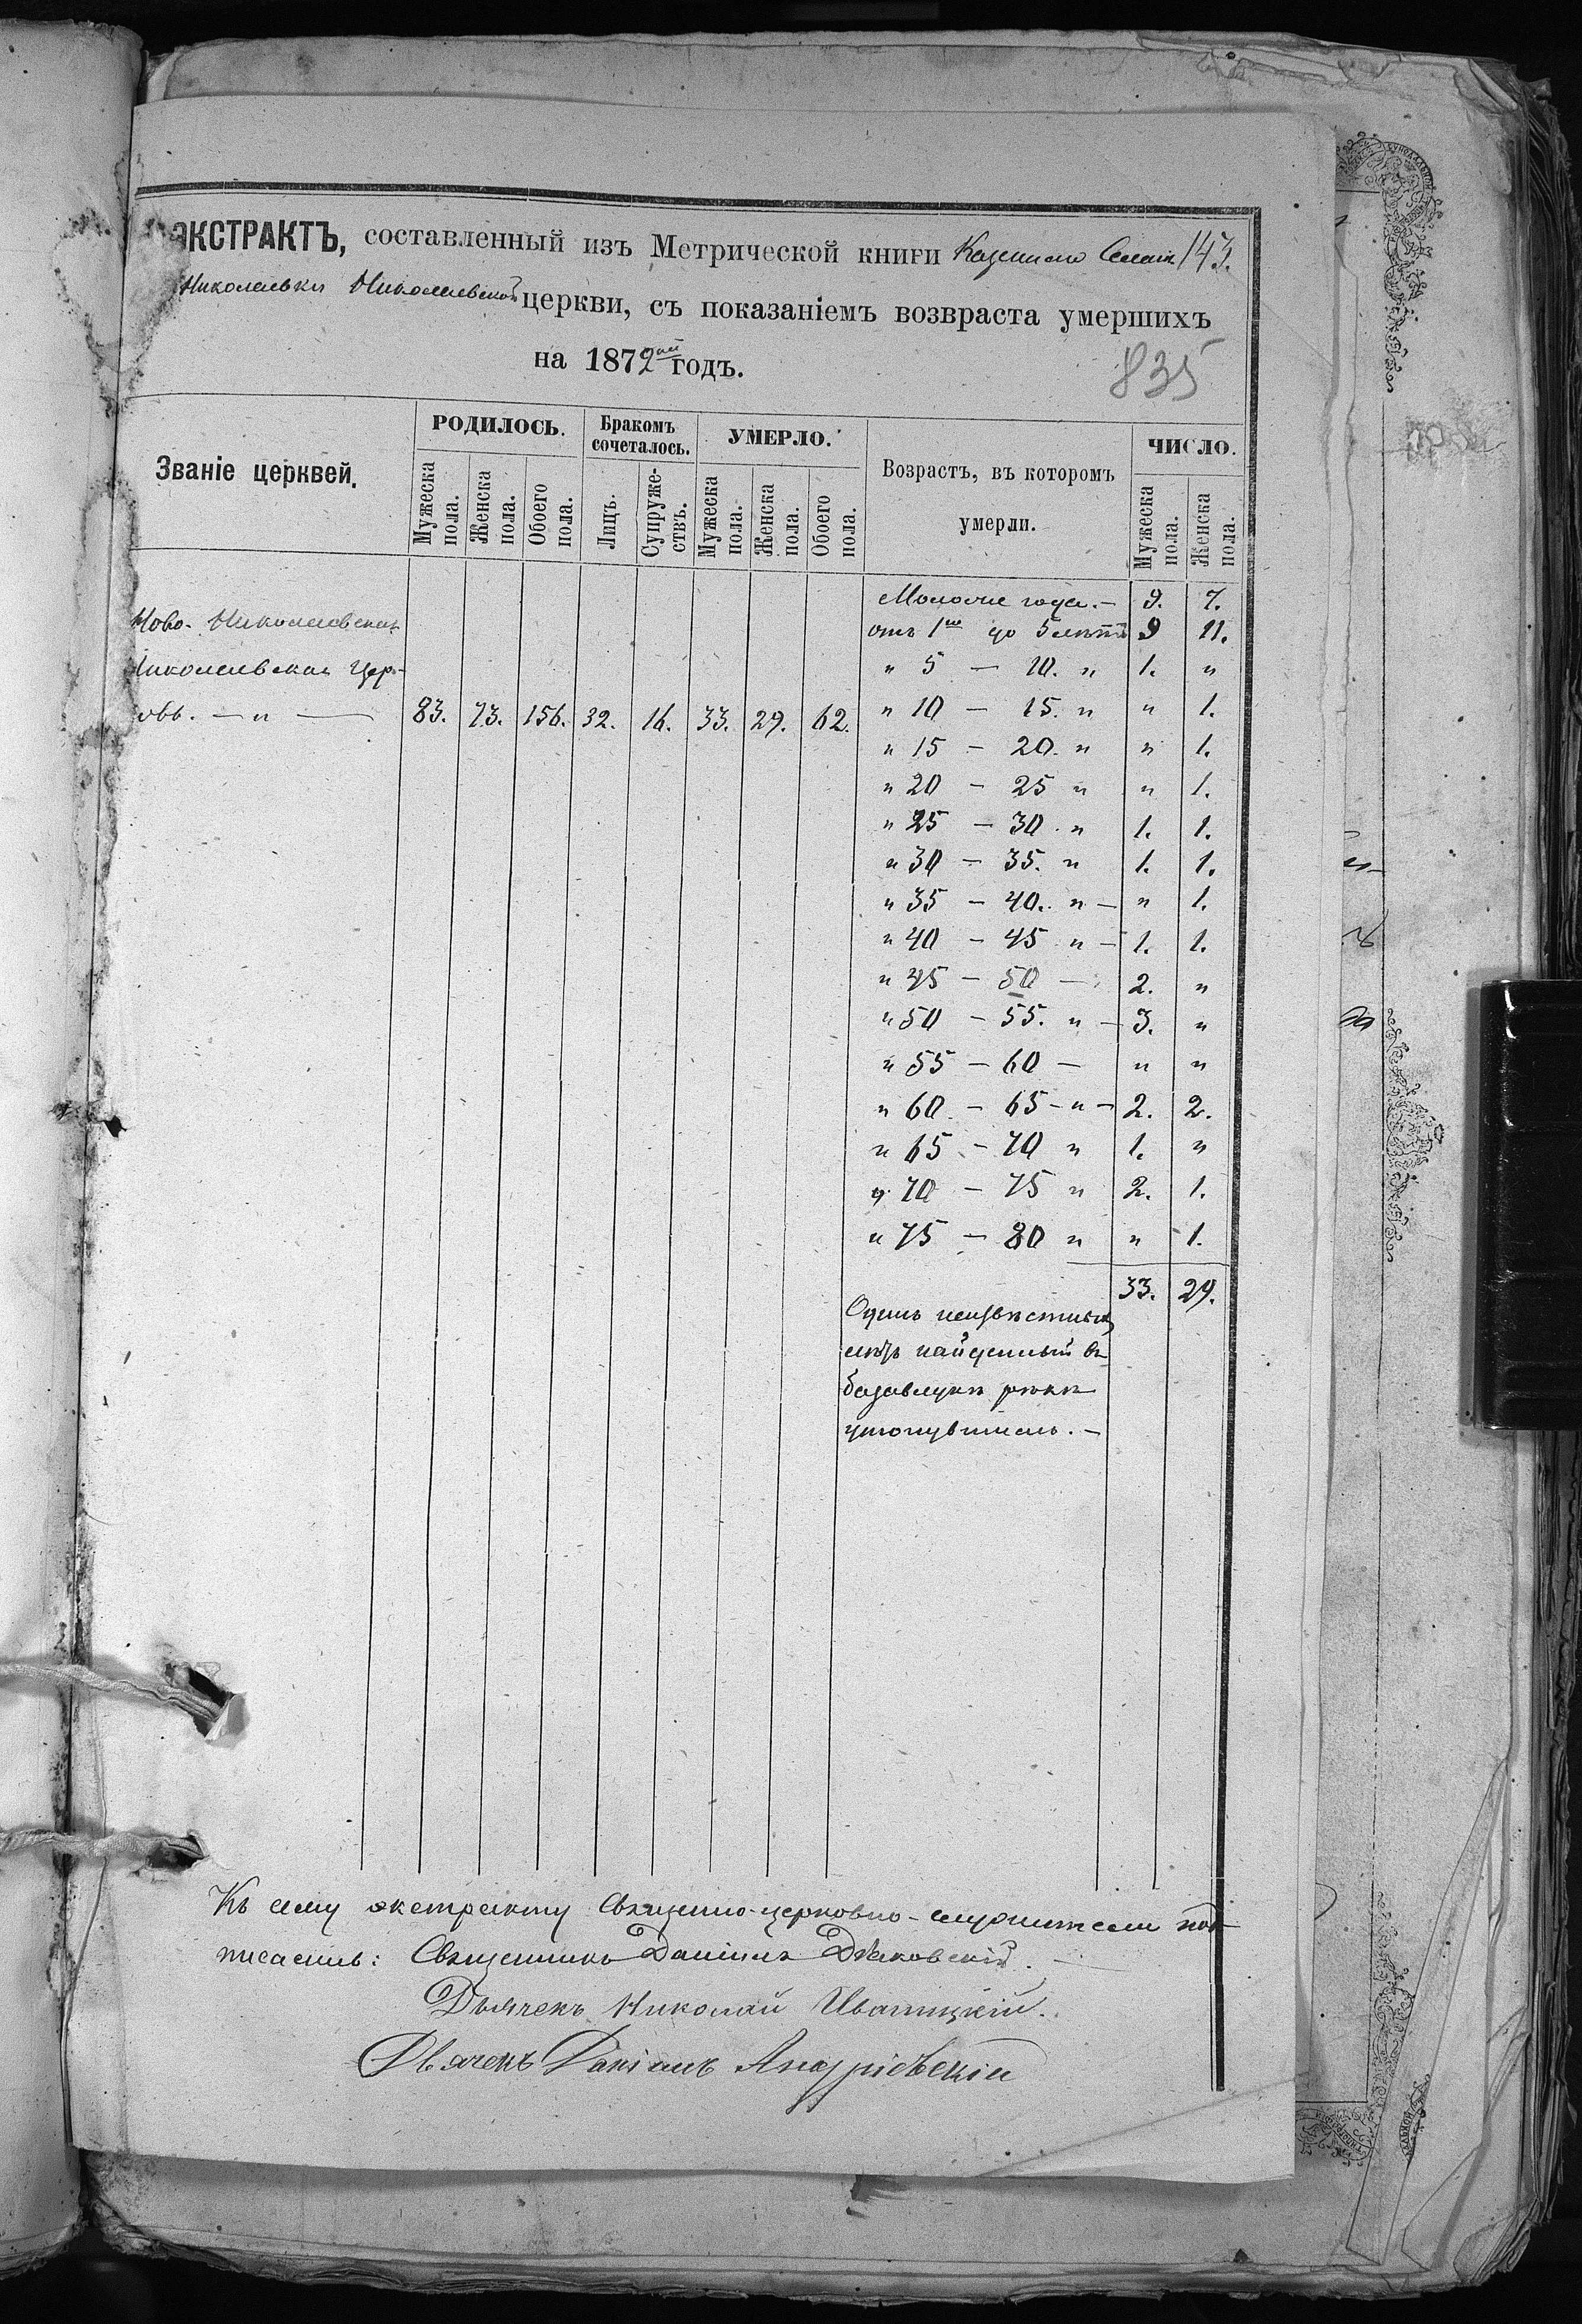 ЭКСТРАКТЪ, составленный изъ Метрической книги Казеннаго Села 143.
Николаевки Николаевской церкви, съ показаніемъ возвраста умершихъ
на 1872ой годъ.
835
Званіе церквей.
РОДИЛОСЬ.
Бракомъ сочеталось.
УМЕРЛО.
Возрастъ, въ которомъ умерли.
ЧИСЛО.
Мужеска пола.
Женска пола.
Обоего пола.
Лицъ.
Супружествъ.
Мужеска пола.
Женска пола.
Обоего пола.
Мужеска пола.
Женска пола.
Ново-Николаевская
Николаевская Цер-
овь. — „ — 83. 73. 156. 32. 16. 33. 29. 62.
года. — 9. 7.
отъ 1го до 5 лѣтъ 9 11.
„ 5 — 10. „ 1. „
„ 10 — 15. „ „ 1.
„ 15 — 20. „ „ 1.
„ 20 — 25 „ „ 1.
„ 25 — 30. „ 1. 1.
„ 30 — 35. „ 1. 1.
„ 35 — 40. „ — „ 1.
„ 40 — 45 „ — 1. 1.
„ 45 — 50 — 2. „
„ 50 — 55. „ — 3. „
„ 55 — 60 — „ „
„ 60 — 65 — „ — 2. 2.
„ 65 — 70 „ 1. „
„ 70 — 75 „ 2. 1.
„ 75 — 80 „ „ 1.
33. 29.
Одинъ неизвѣстный
найденный въ
базавлукѣ рѣкѣ
утонувшимъ. —
Къ сему экстракту Священно-церковно-служители под-
писались: Священникъ Даніилъ Дѣаковскій. —
Дьячекъ Николай Иваницкій.
Дьячекъ Даніилъ Андріевскій